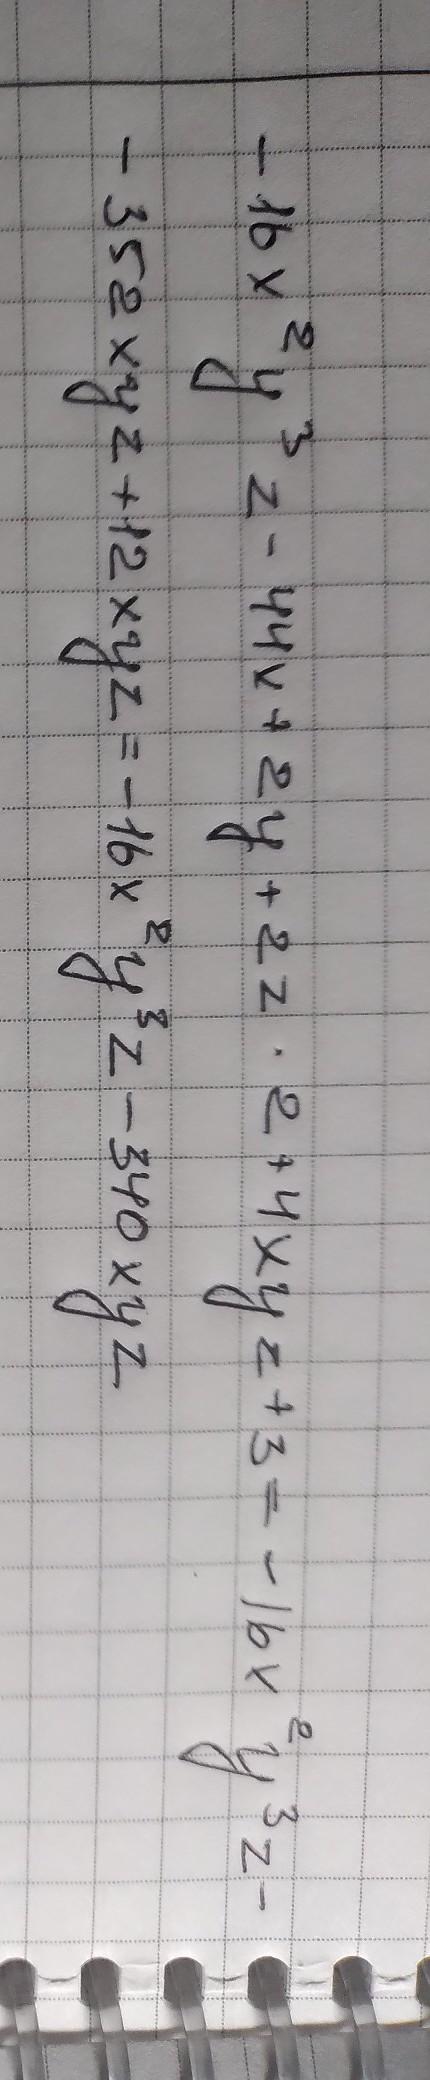 -16x²y³z - 44x + 2y + 2z · 2 + 4xyz + 3 = -16x²y³z -
- 352xyz + 12xyz = -16x²y³z - 340xyz